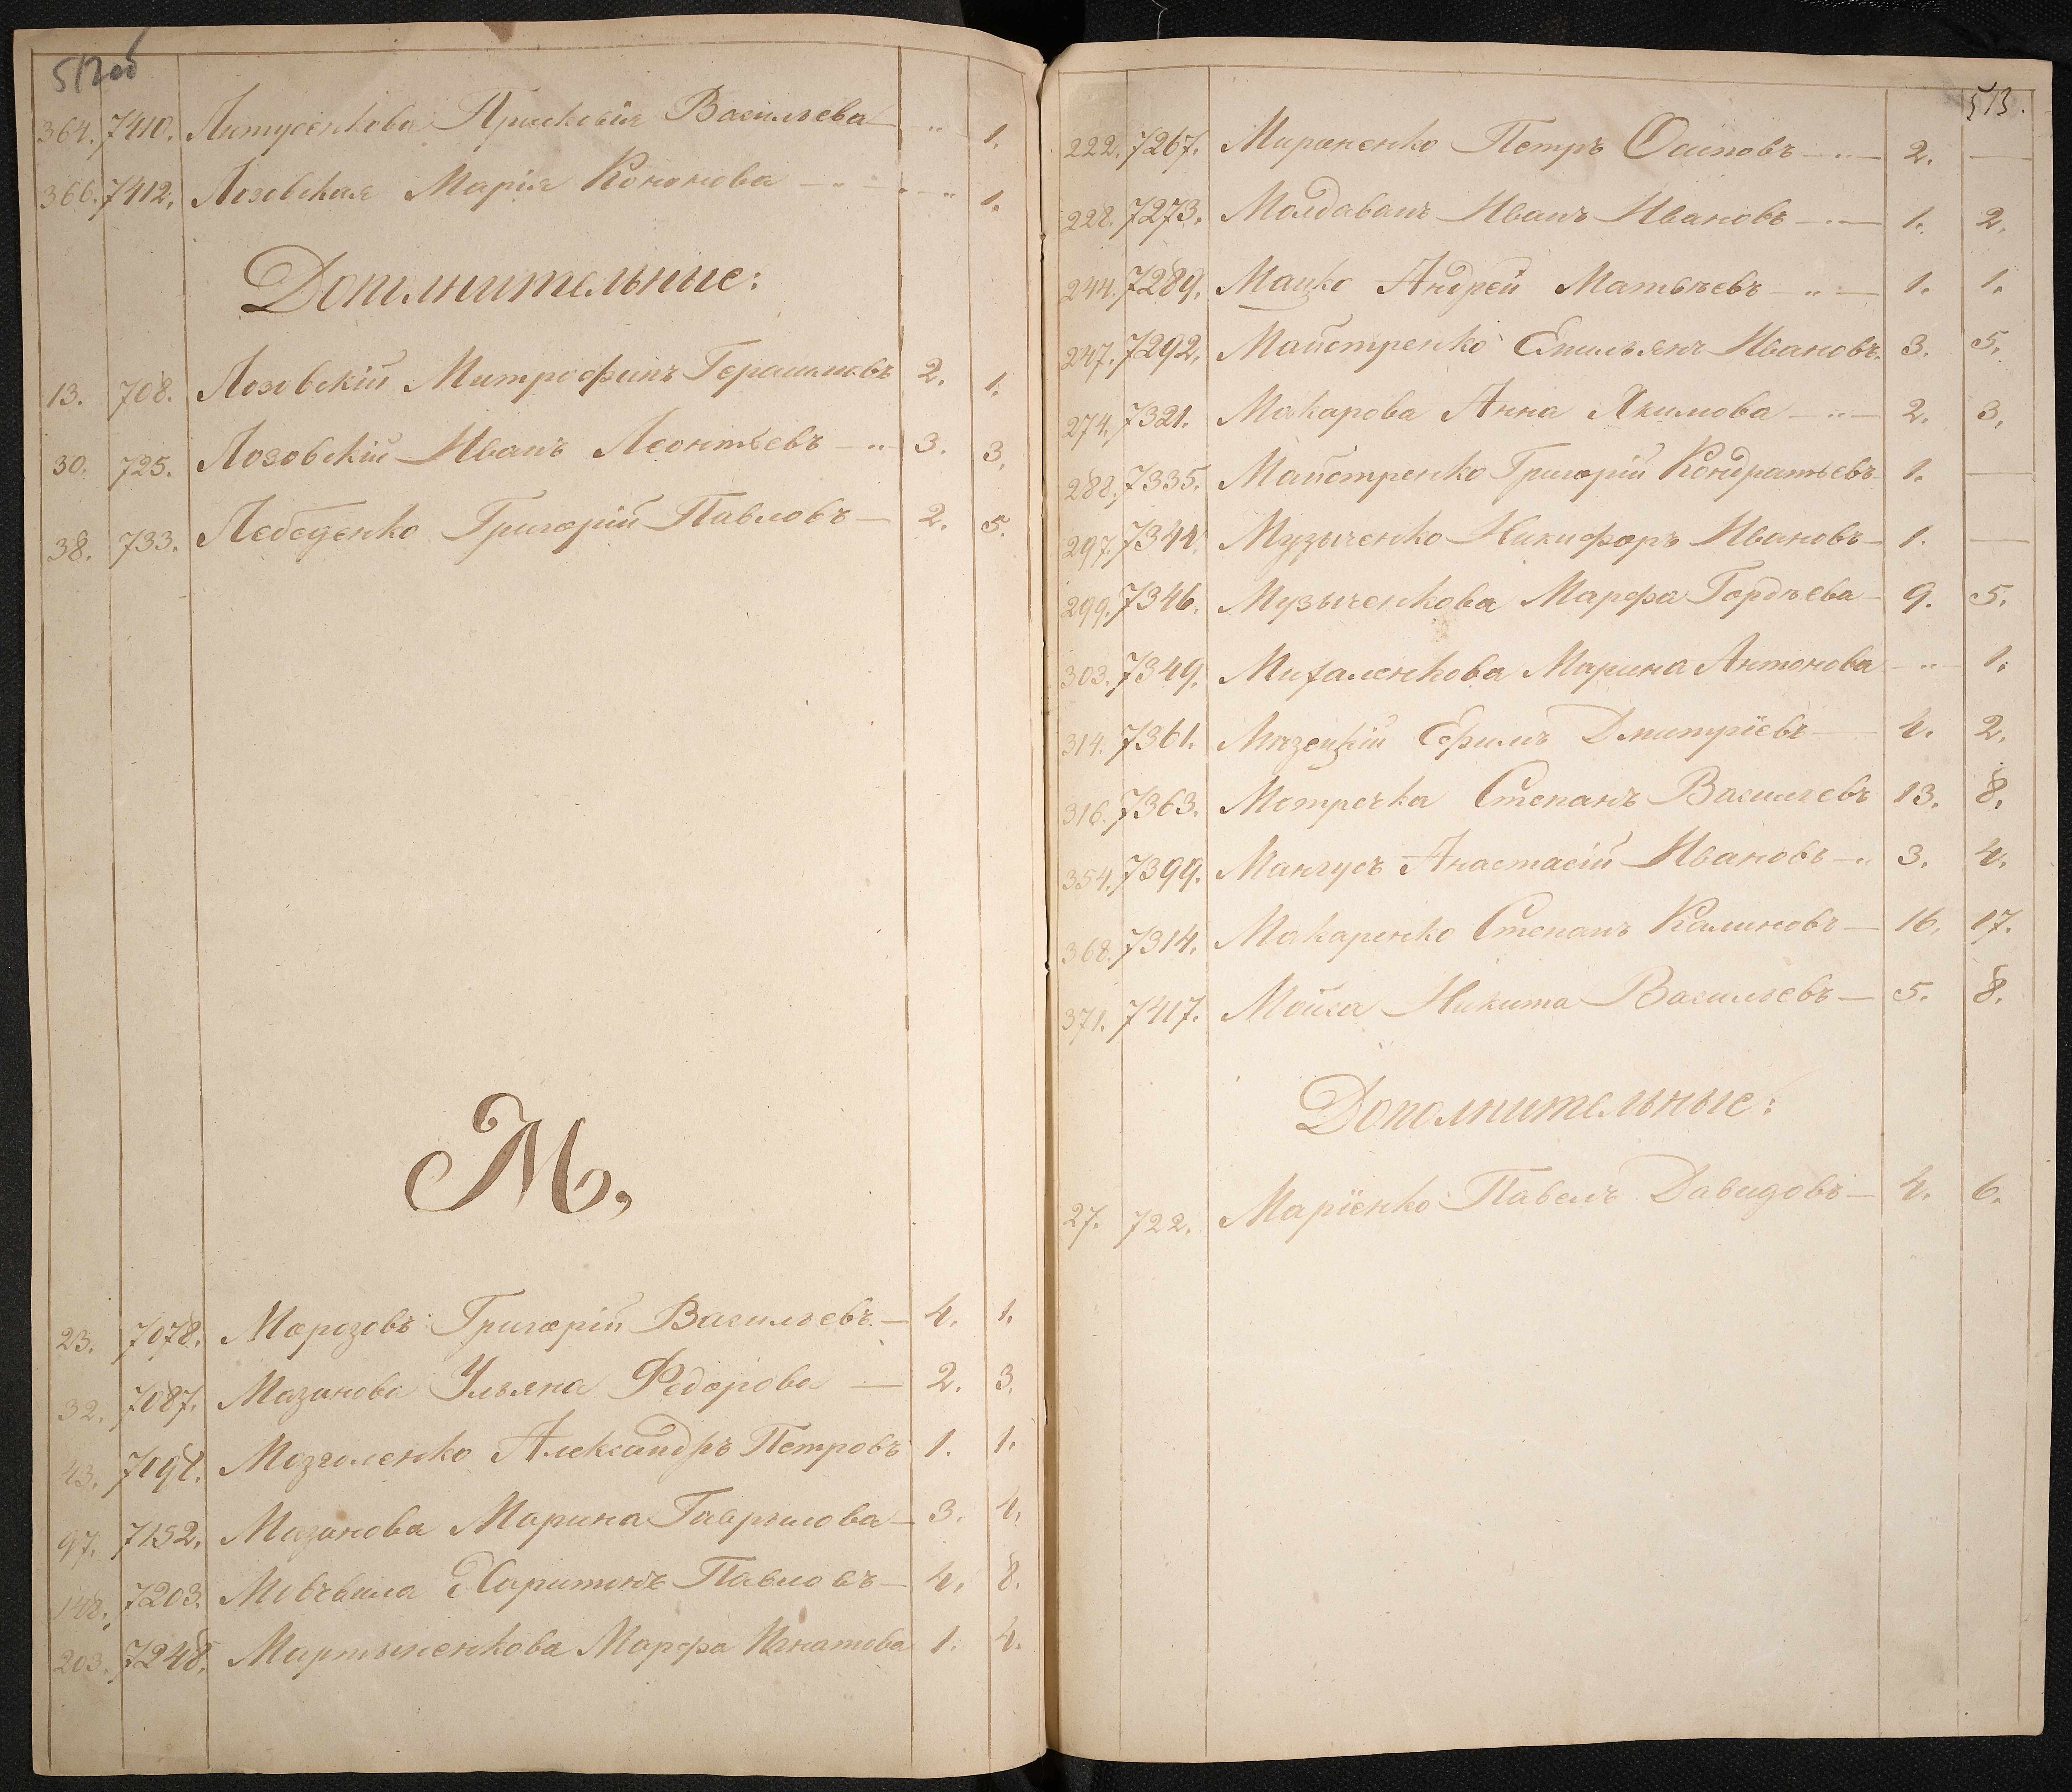 512об
364. 7410. Литусенкова Прасковія Васильева „ 1.
366. 7412. Лозовская Марія Кононова — „ — „ 1.
Дополнительные:
13. 708. Лозовскій Митрофанъ Герасимовъ 2. 1.
30. 725. Лозовскій Иванъ Леонтьевъ — „ 3. 3.
38. 733. Лебеденко Григорій Павловъ — 2. 5.
М,
23. 7078. Морозовъ Григорій Васильевъ — 4. 1.
32. 7087. Мазанова Ульяна Федорова — 2. 3.
43. Мозголенко Александръ Петровъ 1. 1.
97. 7152. Мазанова Марина Гаврилова — 3. 4.
148. 7203. Харитонъ Павловъ — 4. 8.
203. 7248. Мартыненкова Марфа Игнатова 1. 4.
513.
222. 7267. Мироненко Петръ Осиповъ — „ — 2. —
228. 7273. Молдаванъ Иванъ Ивановъ — „ — 1. 2.
244. 7289. Мацко Андрей Матвѣевъ — „ — 1. 1.
247. 7292. Майстренко Емильянъ Ивановъ. 3. 5.
274. 7321. Макарова Анна Якимова — „ — 2. 3.
288. 7335. Майстренко Григорій Кондратьевъ 1. —
297. 7344. Музыченко Никифоръ Ивановъ — 1. —
299. 7346. Музыченкова Марфа Гордѣева — 9. 5.
303. 7349. Михаленкова Марина Антонова — „ — 1.
314. 7361. Ефимъ Дмитріевъ — 4. 2.
316. 7363. Мотречка Степанъ Васильевъ 13. 8.
354. 7399. Мангусъ Анастасій Ивановъ — „ 3. 4.
368. 7314. Макаренко Степанъ Калиновъ — 16. 17.
371. 7417. Мойса Никита Васильевъ — 5. 8.
Дополнительные:
27. 722. Маріенко Павелъ Давидовъ — 4. 6.